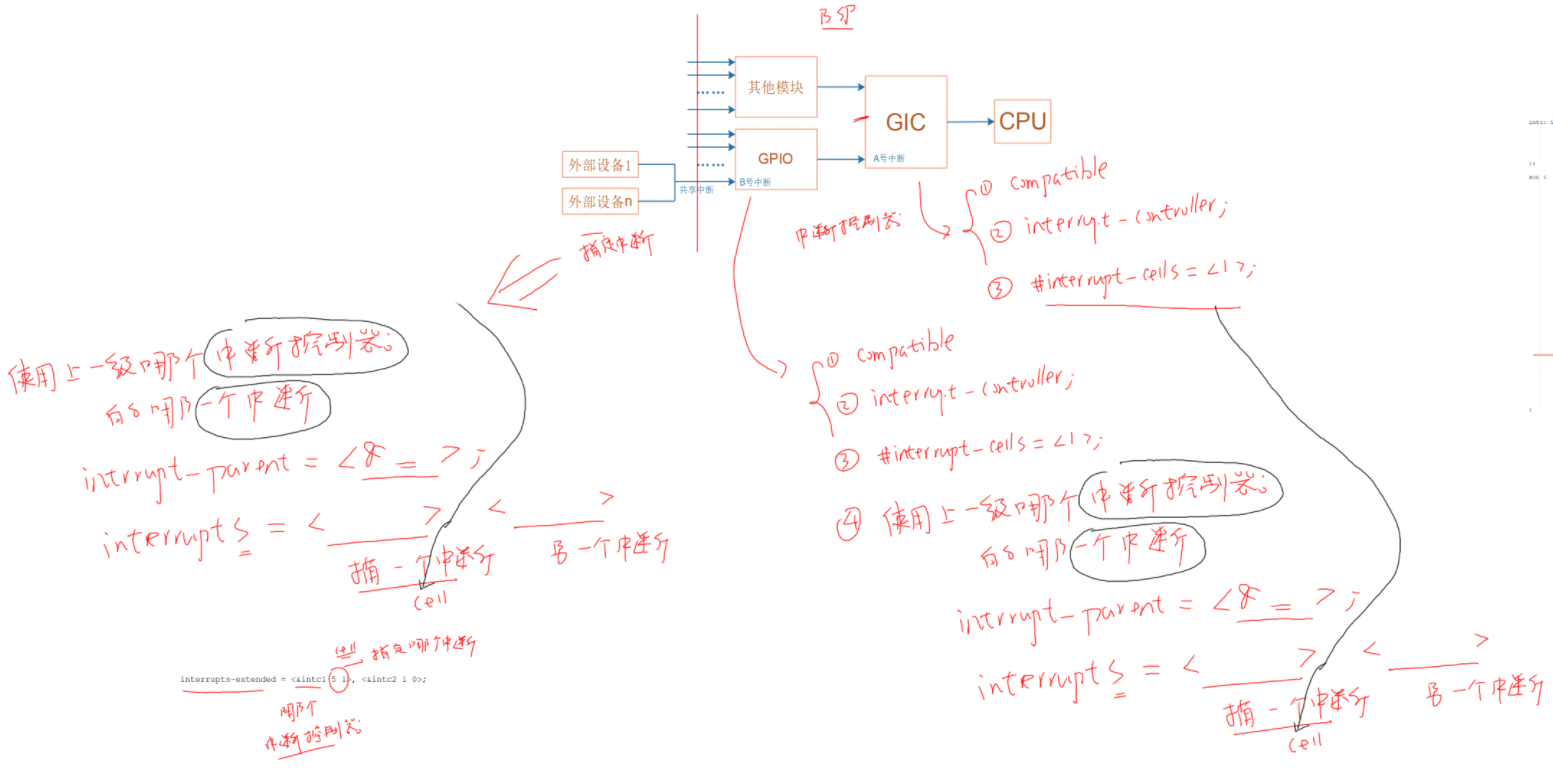 B号
其他模块
GIC
A号中断
CPU
GPIO
B号中断
外部设备1
外部设备n
共享中断
......
......
指定中断
中断控制器
① compatible
② interrupt-controller;
③ #interrupt-cells = <1>;
① compatible
② interrupt-controller;
③ #interrupt-cells = <1>;
使用上一级哪个中断控制器
哪一个中断
intrrupt-parent = <& = >;
interrupts = < > < >
指一个中断 另一个中断
cell
④ 使用上一级哪个中断控制器
哪一个中断
intrrupt-parent = <& = >;
interrupts = < > < >
指一个中断 另一个中断
cell
cell 指定哪个中断
interrupts-extended = <&intc1 5 1>, <&intc2 1 0>;
哪个
中断控制器
intc: i
};
soc {
}